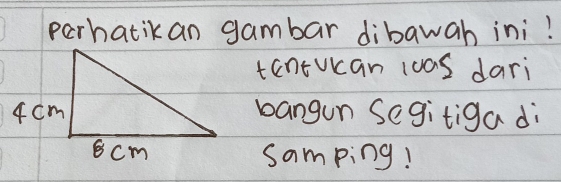 perhatikan gambar dibawah ini!
tentukan luas dari
4 cm
bangun segitiga di
8 cm
samping!